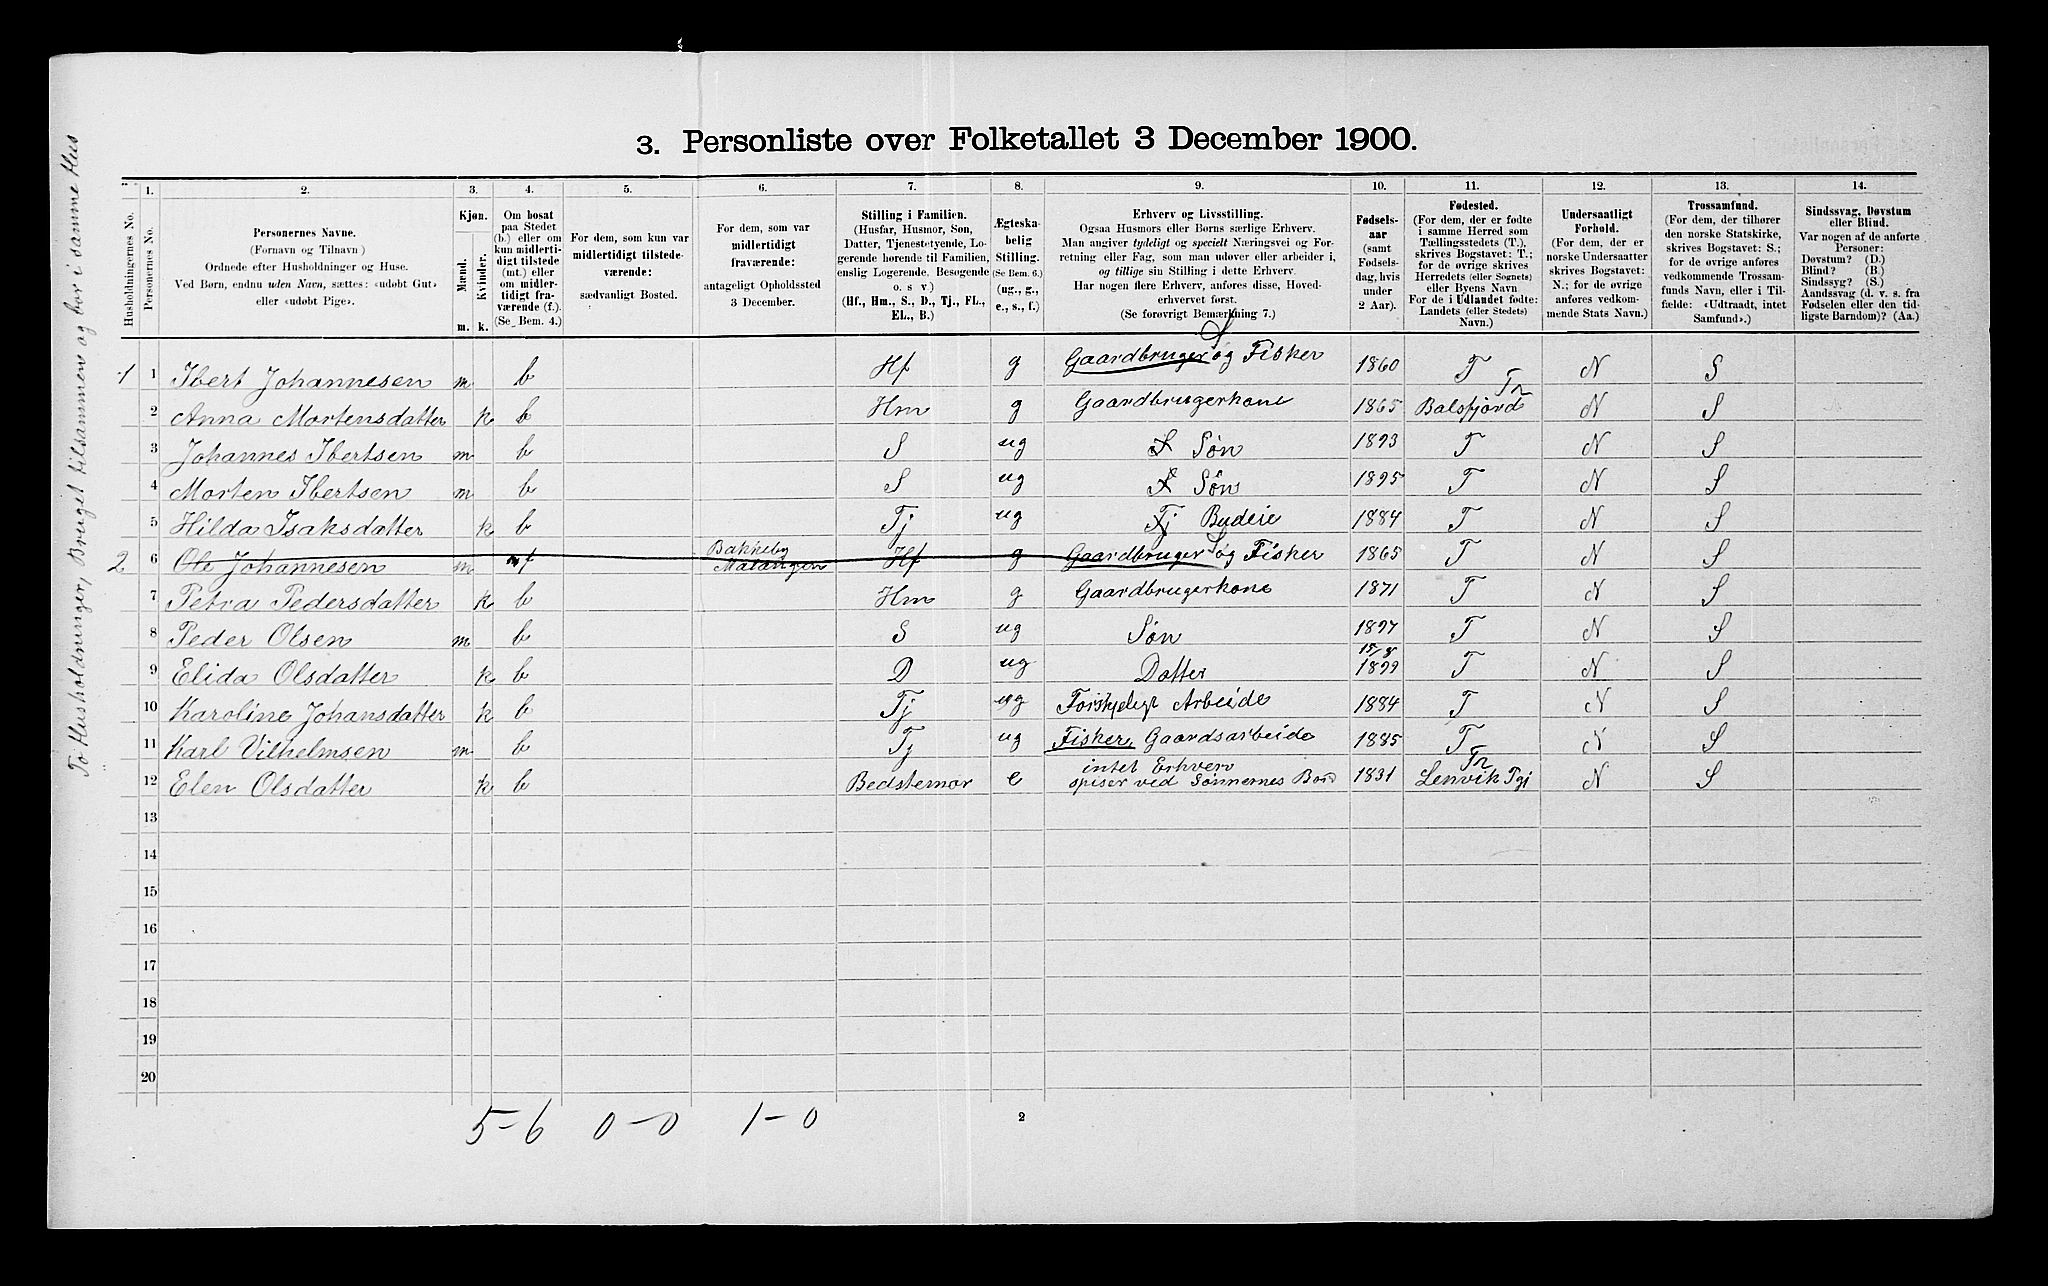 3. Personliste over Folketallet 3 December 1900.
To Husholdninger, Bruget tilsammen og bor i samme Hus
Husholdningernes No.
1.
Personernes No.
2.
Personernes Navne.
(Fornavn og Tilnavn)
Ordnede efter Husholdninger og Huse.
Ved Børn, endnu uden Navn, sættes: «udøbt Gut»
eller «udøbt Pige».
3.
Kjøn.
Mænd.
Kvinder.
m. k.
4.
Om bosat
paa Stedet
(b.) eller om
kun midler-
tidigt tilstede
(mt.) eller
om midler-
tidigt fra-
værende (f.).
(Se Bem. 4.)
5.
For dem, som kun var
midlertidigt tilstede-
værende:
sædvanligt Bosted.
6.
For dem, som var
midlertidigt
fraværende:
antageligt Opholdssted
3 December.
7.
Stilling i Familien.
(Husfar, Husmor, Søn,
Datter, Tjenestetyende, Lo-
gerende hørende til Familien,
enslig Logerende, Besøgende
o. s v)
(Hf., Hm., S., D., Tj., FL.,
EL., B.)
8.
Ægteska-
belig
Stilling.
(Se Bem. 6.)
(ug., g.,
e., s., f.)
9.
Erhverv og Livsstilling.
Ogsaa Husmors eller Børns særlige Erhverv.
Man angiver tydeligt og specielt Næringsvei og For-
retning eller Fag, som man udøver eller arbeider i,
og tillige sin Stilling i dette Erhverv.
Har nogen flere Erhverv, anføres disse, Hoved-
erhvervet først.
(Se forøvrigt Bemærkning 7.)
10.
Fødsels-
aar
(samt
Fødsels-
dag, hvis
under
2 Aar).
11.
Fødested.
(For dem, der er fødte
i samme Herred som
Tællingsstedets (T.),
skrives Bogstavet: T.;
for de øvrige skrives
Herredets (eller Sognets)
eller Byens Navn
For de i Udlandet fødte:
Landets (eller Stedets)
Navn.)
12.
Undersaatligt
Forhold.
(For dem, der er
norske Undersaatter
skrives Bogstavet:
N.; for de øvrige
anføres vedkom-
mende Stats Navn.)
13.
Trossamfund.
(For dem, der tilhører
den norske Statskirke,
skrives Bogstavet: S.;
for de øvrige anføres
vedkommende Trossam-
funds Navn, eller i Til-
fælde: «Udtraadt, intet
Samfund».)
14.
Sindssvag, Døvstum
eller Blind.
Var nogen af de anførte
Personer:
Døvstum? (D.)
Blind? (B.)
Sindssyg? (S.)
Aandssvag (d. v. s. fra
Fødselen eller den tid-
ligste Barndom)? (Aa.)
1 1 Ibert Johannesen m b Hf g Gaardbruger S og Fisker 1860 T N S
2 Anna Mortensdatter k b Hm g Gaardbrugerkone 1865 Balsfjord Tr N S
3 Johannes Ibertsen m b S ug S Søn 1893 T N S
4 Morten Ibertsen m b S ug S Søn 1895 T N S
5 Hilda Isaksdatter k b Tj ug Tj Budeie 1884 T N S
2 6 Ole Johannesen m f Bakkeby Malangen Hf g Gaardbruger S og Fisker 1865 T N S
7 Petra Pedersdatter k b Hm g Gaardbrugerkone 1871 T N S
8 Peder Olsen m b S ug Søn 1897 T N S
9 Elida Olsdatter k b D ug Datter 15/8 1899 T N S
10 Karoline Johansdatter k b Tj ug Forskjeligt Arbeide 1884 T N S
11 Karl Vilhelmsen m b Tj ug Fisker, Gaardsarbeide 1885 T N S
12 Elen Olsdatter k b Bedstemor e intet Erhverv spiser ved Sønnernes Bord 1831 Lenvik Tr N S
13
14
15
16
17
18
19
20
5-6 0-0 1-0
2